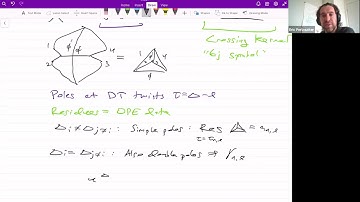 Crossing Kernel
1 φ φ 4
2 3
=
"6j symbol"
Poles at DT twists τ = Δ - ℓ
Residues = OPE data
Δi ≠ Δj≠i : Simple poles : Res = an,ℓ
τ = τn,ℓ
Δi = Δj≠i : Also double poles ⇒ γn,ℓ